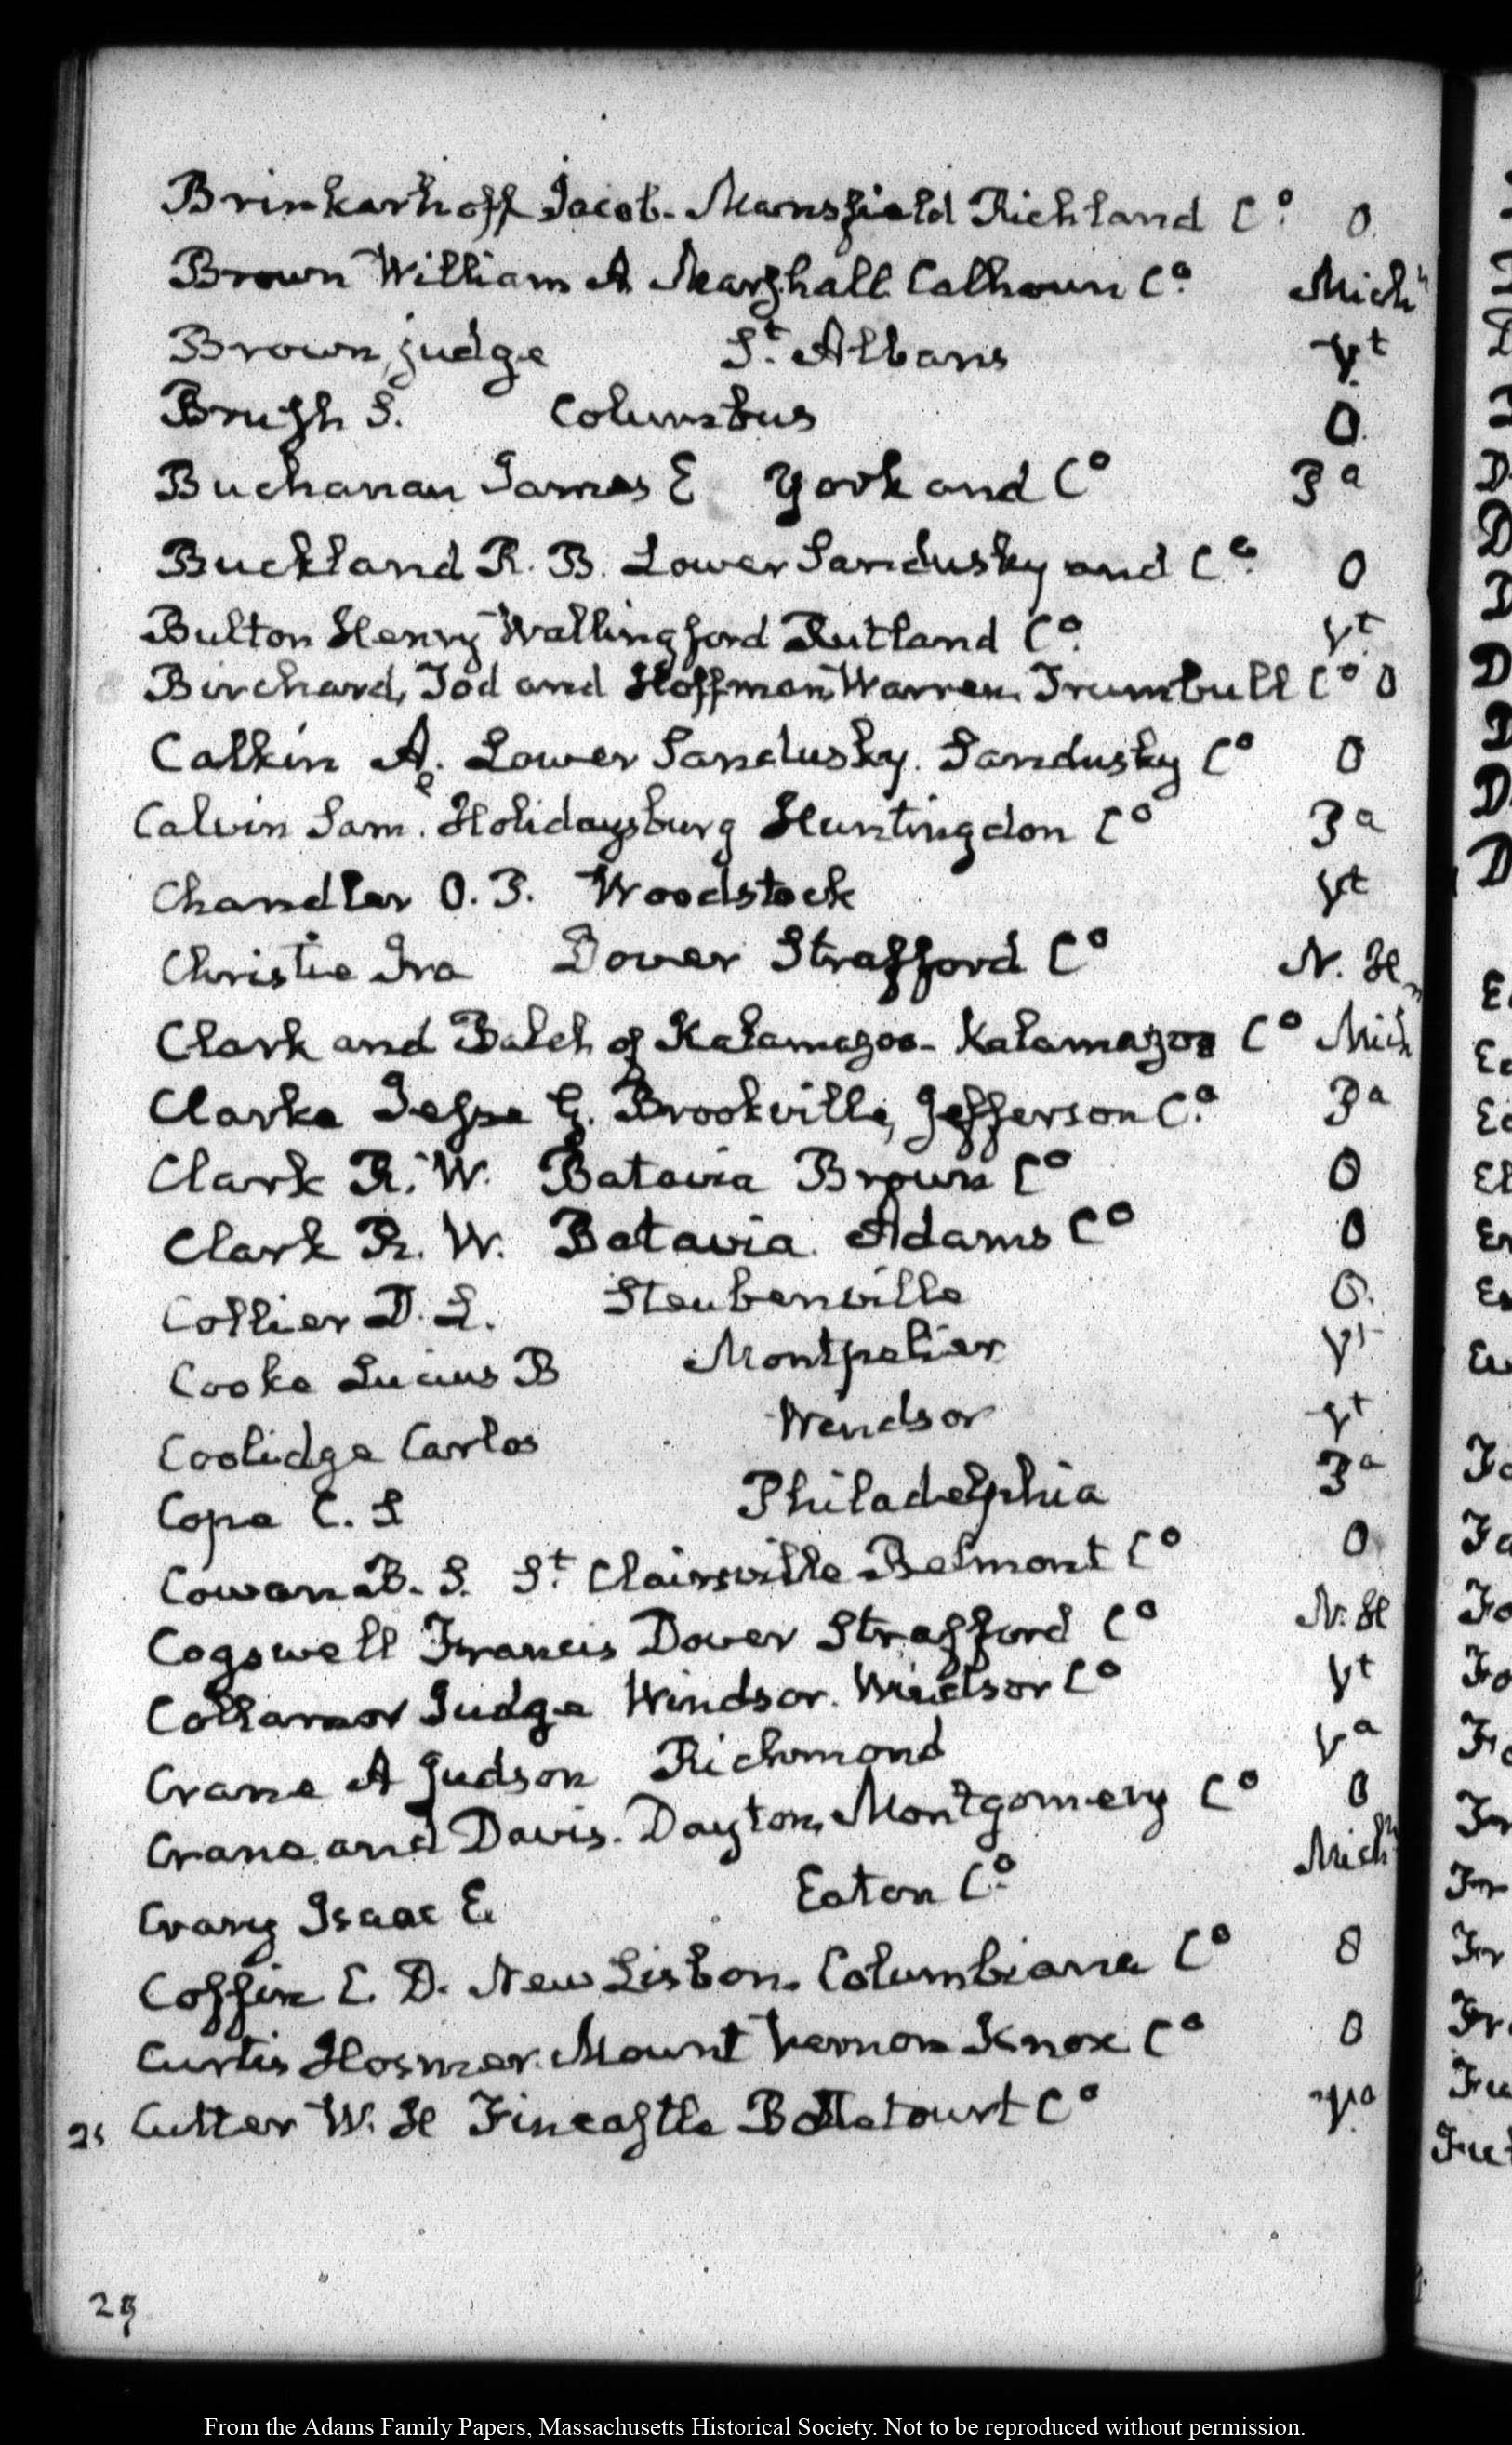 Brinkarhoff Jacob. Mansfield Richland Co. O.
Brown William A Marshall Calhoun Co. Michn
Brown, judge St. Albans Vt
Brush S. Columbus O.
Buchanan James E York and Co Pa
Buckland R. B. Lower Sandusky and Co. O
Bulton Henry Wallingford Rutland Co. Vt
Birchard, Tod and Hoffman Warren Trumbull Co O
Calkin A. Lower Sandusky. Sandusky Co O
Calvin Sam. Holidaysburg Huntingdon Co Pa
Chandler O. P. Woodstock Vt
Christie Ira Dover Strafford Co N. H
Clark and Balch of Kalamazoo - Kalamazoo Co Mich
Clarke Jesse G. Brookville, Jefferson Co. Pa
Clark R. W. Batavia Brown Co O
Clark R. W. Batavia. Adams Co O
Collier D. L. Steubenville O.
Cooke Lucius B Montpelier Vt
Coolidge Carlos Windsor Vt
Cope C. S Philadelphia Pa
Cowan B. S. St. Clairsville Belmont Co O
Cogswell Francis Dover Strafford Co N. H
Collamor Judge Windsor. Windsor Co Vt
Crane A Judson Richmond Va
Crane and Davis. Dayton, Montgomery Co O
Crary Isaac E. Eaton Co. Michn
Coffin E. D. New Lisbon. Columbiana Co O
Curtis Hosmer. Mount Vernon Knox Co O
25 Cutter W. H Fincastle Bottetourt Co Va
29
From the Adams Family Papers, Massachusetts Historical Society. Not to be reproduced without permission.